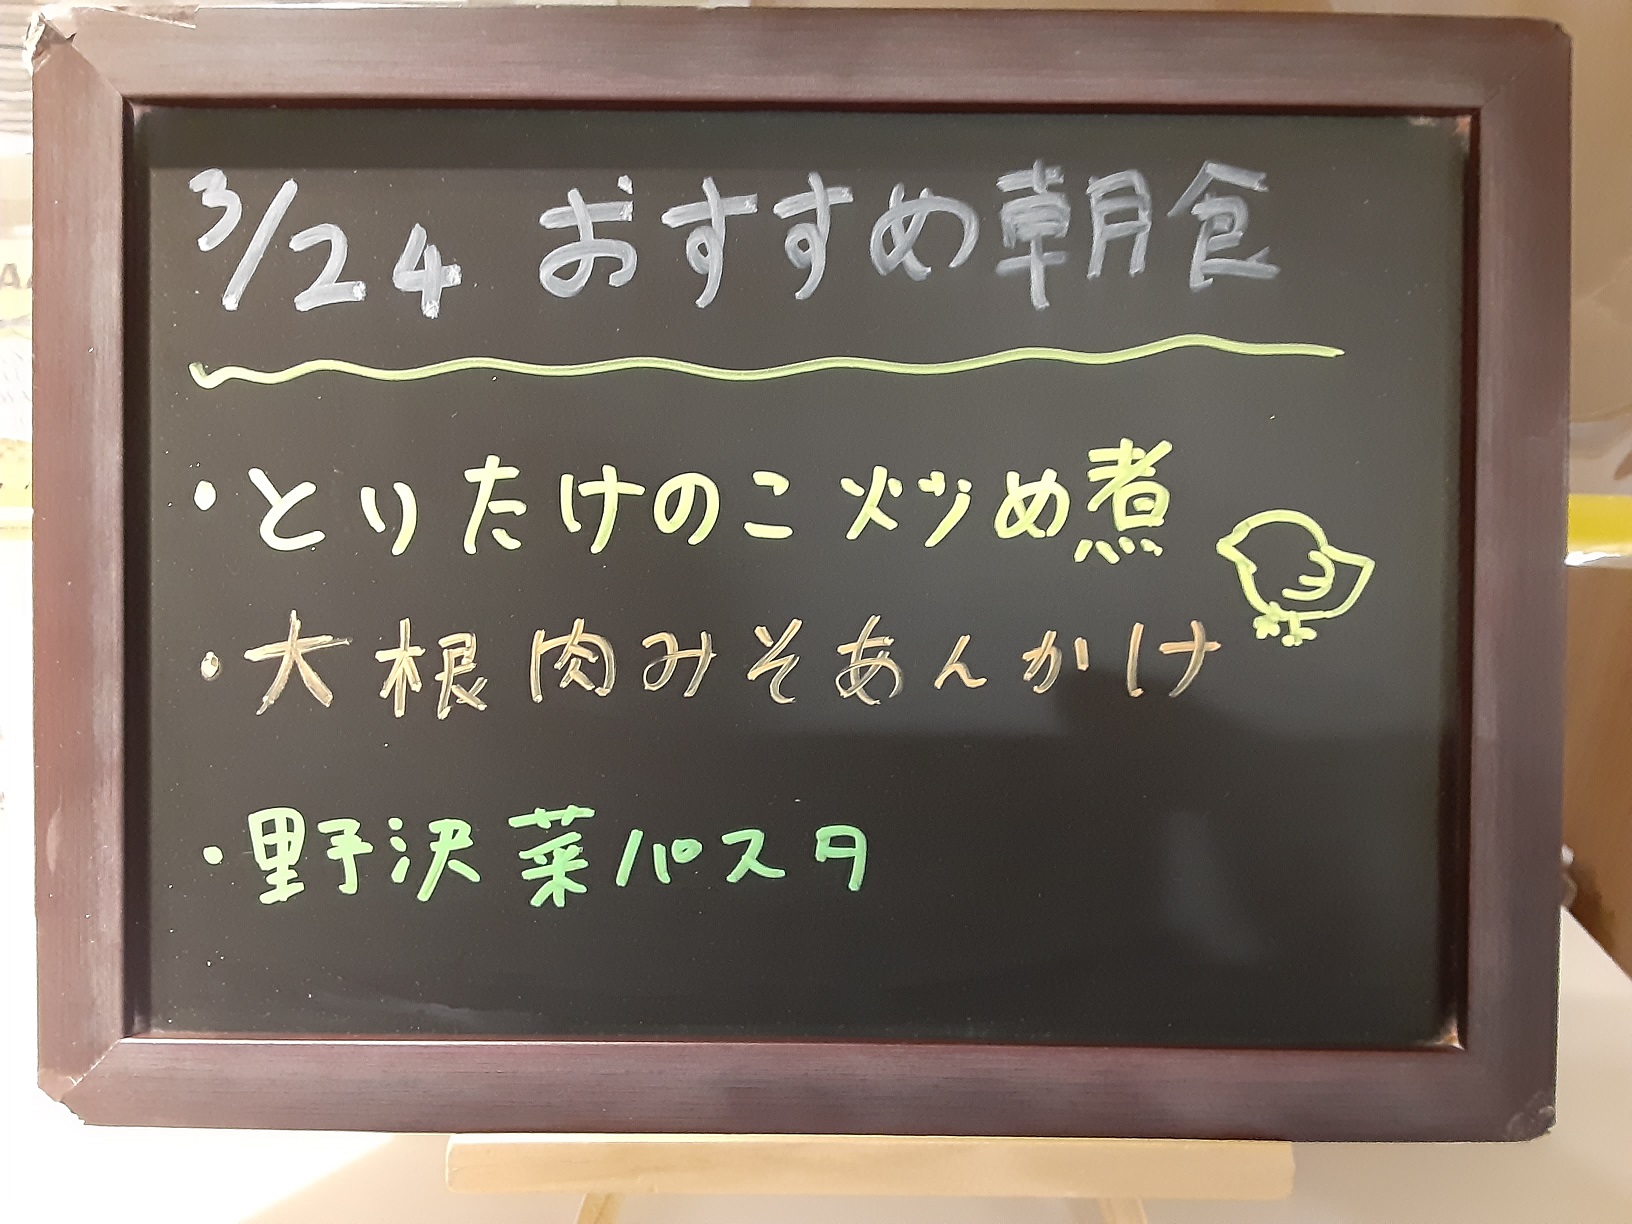 3/24 おすすめ朝食
・とりたけのこ炒め煮
・大根肉みそあんかけ
・野沢菜パスタ